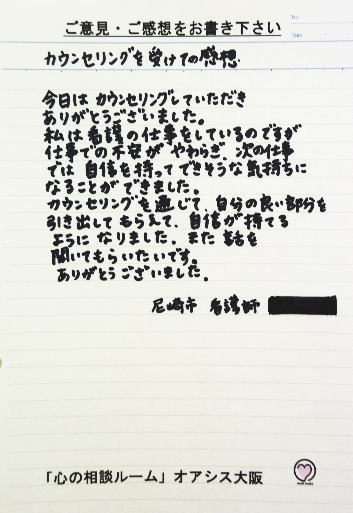 ご意見・ご感想をお書き下さい
No.
Date
カウンセリングを受けての感想
今日は カウンセリングしていただき
ありがとうございました。
私は看護の仕事をしているのですが
仕事での不安が やわらぎ、次の仕事
では 自信を持ってできそうな気持ちに
なることが できました。
カウンセリングを通じて、自分の良い部分を
引き出して もらえて、自信が持てる
ように なりました。また 話を
聞いてもらいたいです。
ありがとうございました。
尼崎市 看護師
「心の相談ルーム」オアシス大阪